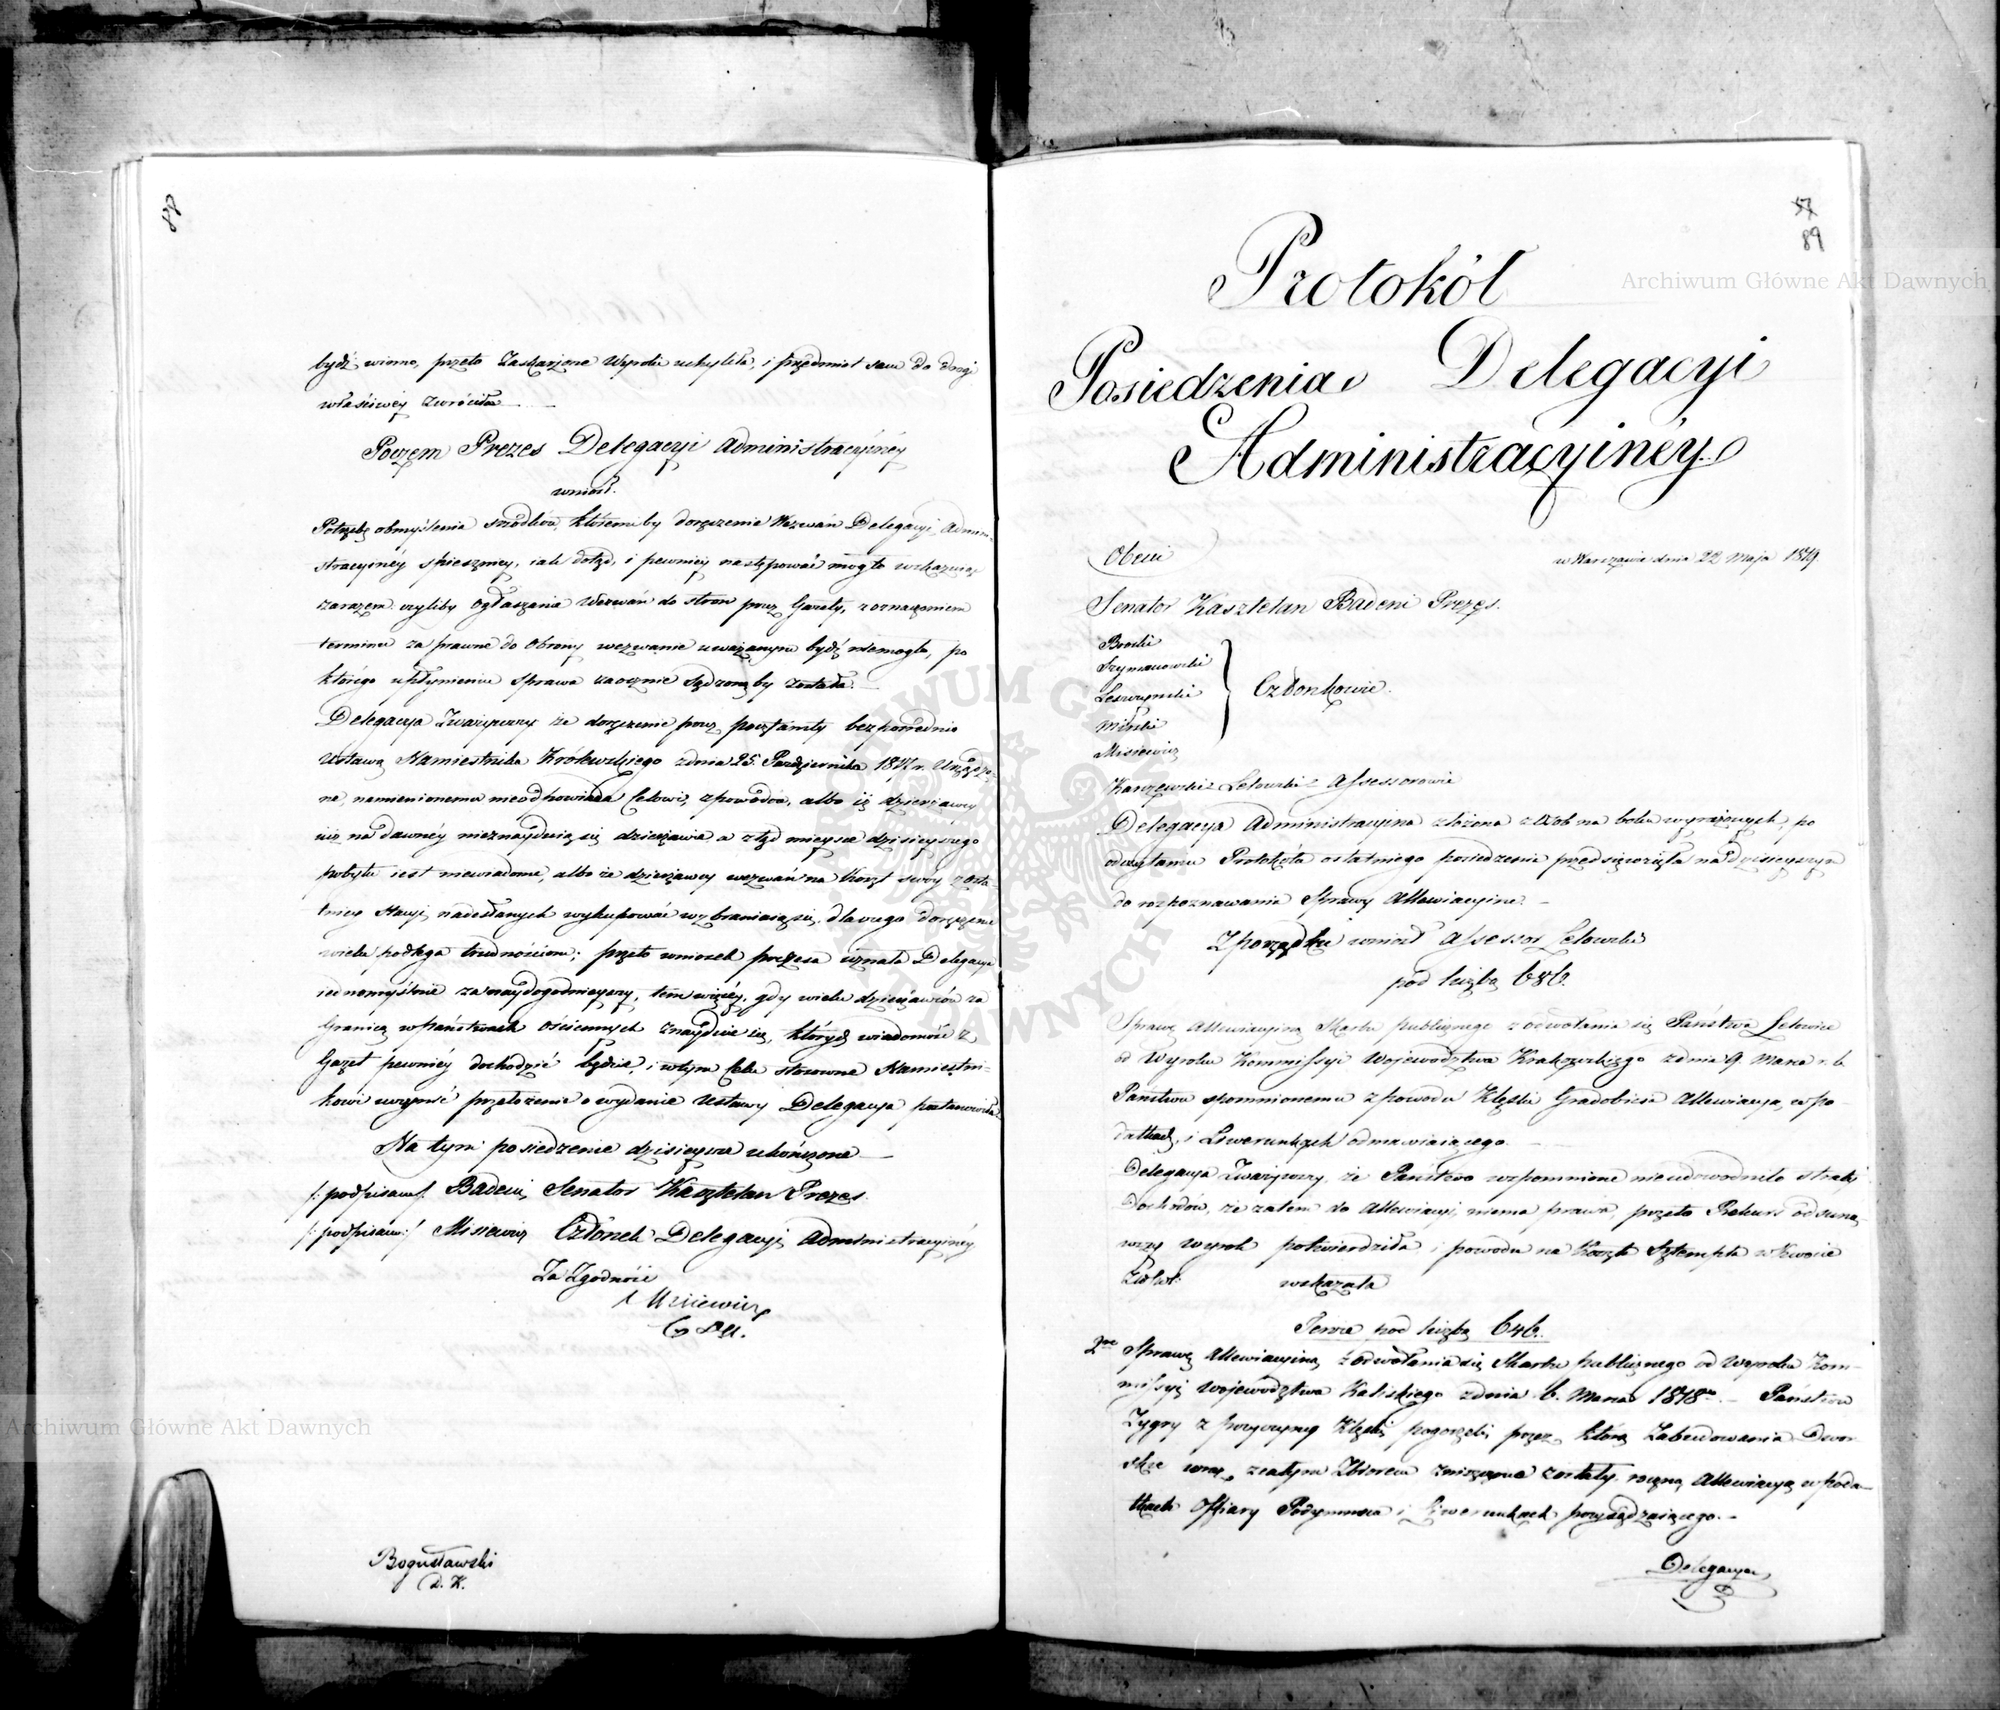 88
bydź winno, przeto Zaskarżone Wyroki uchyliła, i przedmiot sam do drogi
właściwéy zwróciła
Poczem Prezes Delegacyi Administracyinéy
wniósł.
Potrzebę obmyślenia srzodków, któremi by doręczenie Wezwań Delegacyi Admini-
stracyinéy spieszniey, iak dotąd, i pewniey następować mogło wskazuiąc
zarazem czyliby ogłaszania Wezwań do stron przez Gazety, z oznaczeniem
terminu za prawne do Obrony wezwanie uważanym bydź niemogło, po
którego upłynieniu sprawa zaocznie sądzoną by została.
Delegacya Zważywszy że doręczenie przez pocztamty bezpośrednio
Ustawą Namiestnika Królewskiego z dnia 25. Października 1817 r. Urządzo-
ne, namienionemu nieodpowiada Celowi, z powodów, albo iż dzierżawcy
iuż na dawnéy nieznayduią się dzierżawie a ztąd mieysce dzisieyszego
pobytu iest niewiadome, albo że dzierżawcy wezwań na Koszt swóy z osta-
tniey Stacyi nadesłanych wykupować wzbraniaią się, dla czego doręczenie
wielu podlega trudnościom; przeto wniosek prezesa uznała Delegacya
iednomyślnie za naydogodnieyszy, tem więcéy, gdy wielu dzierżawców za
Granicą w państwach ościennych znayduie się, których wiadomość z
Gazet pewniéy dochodzić będzie, i w tym Celu stosowne Namiestni-
kowi uczynić przełożenie o wydanie Ustawy Delegacya postanowiła.
Na tym posiedzenie dzisieysze ukończone
/: podpisano :/ Badeni, Senator Kasztelan Prezes.
/: podpisano :/ Misiewicz Członek Delegacyi Administracyinéy
Za Zgodność
Misiewicz
Bogusławski
D. K.
57
89
Protokół
Posiedzenia Delegacyi
Administracyinéy
Obecni
w Warszawie dnia 22 Maja 1819.
Senator Kasztelan Badeni Prezes.
Brocki
Szymanowski
Leszczynski
Członkowie.
Misiewicz
Karczewski Letowski Assessorowie
Delegacya Administracyina złożona z Osób na boku wyrażonych, po
odczytaniu Protokółu ostatniego posiedzenia przedsięwzięła na dzisieyszym
do rozpoznawania Sprawy Allewiacyine.
Z porządku wniósł Assessor Letowski
pod liczbą 686.
Sprawę Allewiacyiną Skarbu publicznego z odwołania się Państwa Letowice
od Wyroku Kommissyi Województwa Krakowskiego z dnia 9. Marca r. b.
Państwu wspomnionemu z powodu Klęski Gradobicia Allewiacyą w po-
datkach, i Liwerunkach odmawiaiącego.
Delegacya Zważywszy, że Państwo wspomnione nieudowodniło straty
Dochodów, że zatem do Allewiacyi niema prawa, przeto Rekurs odsuną-
wszy Wyrok potwierdziła i powoda na Koszta Sztempla w Kwocie
Złotol. wskazała
Tenże pod liczbą 646.
2re Sprawę Allewiacyiną z odwołania się Skarbu publicznego od Wyroku Kom-
missyi Województwa Kaliskiego z dnia 6. Marca 1818 r. Państwu
Zygry z przyczyny Klęski pogorzeli, przez którą Zabudowania Dwor-
skie wraz z całym Zbiorem zniszczone zostały, roczną Allewiacyą w poda-
tkach Offiary Podymnem i Liwerunkach przysądzaiącego.
Delegacya
Archiwum Główne Akt Dawnych
Archiwum Główne Akt Dawnych
ARCHIWUM GŁÓWNE AKT DAWNYCH